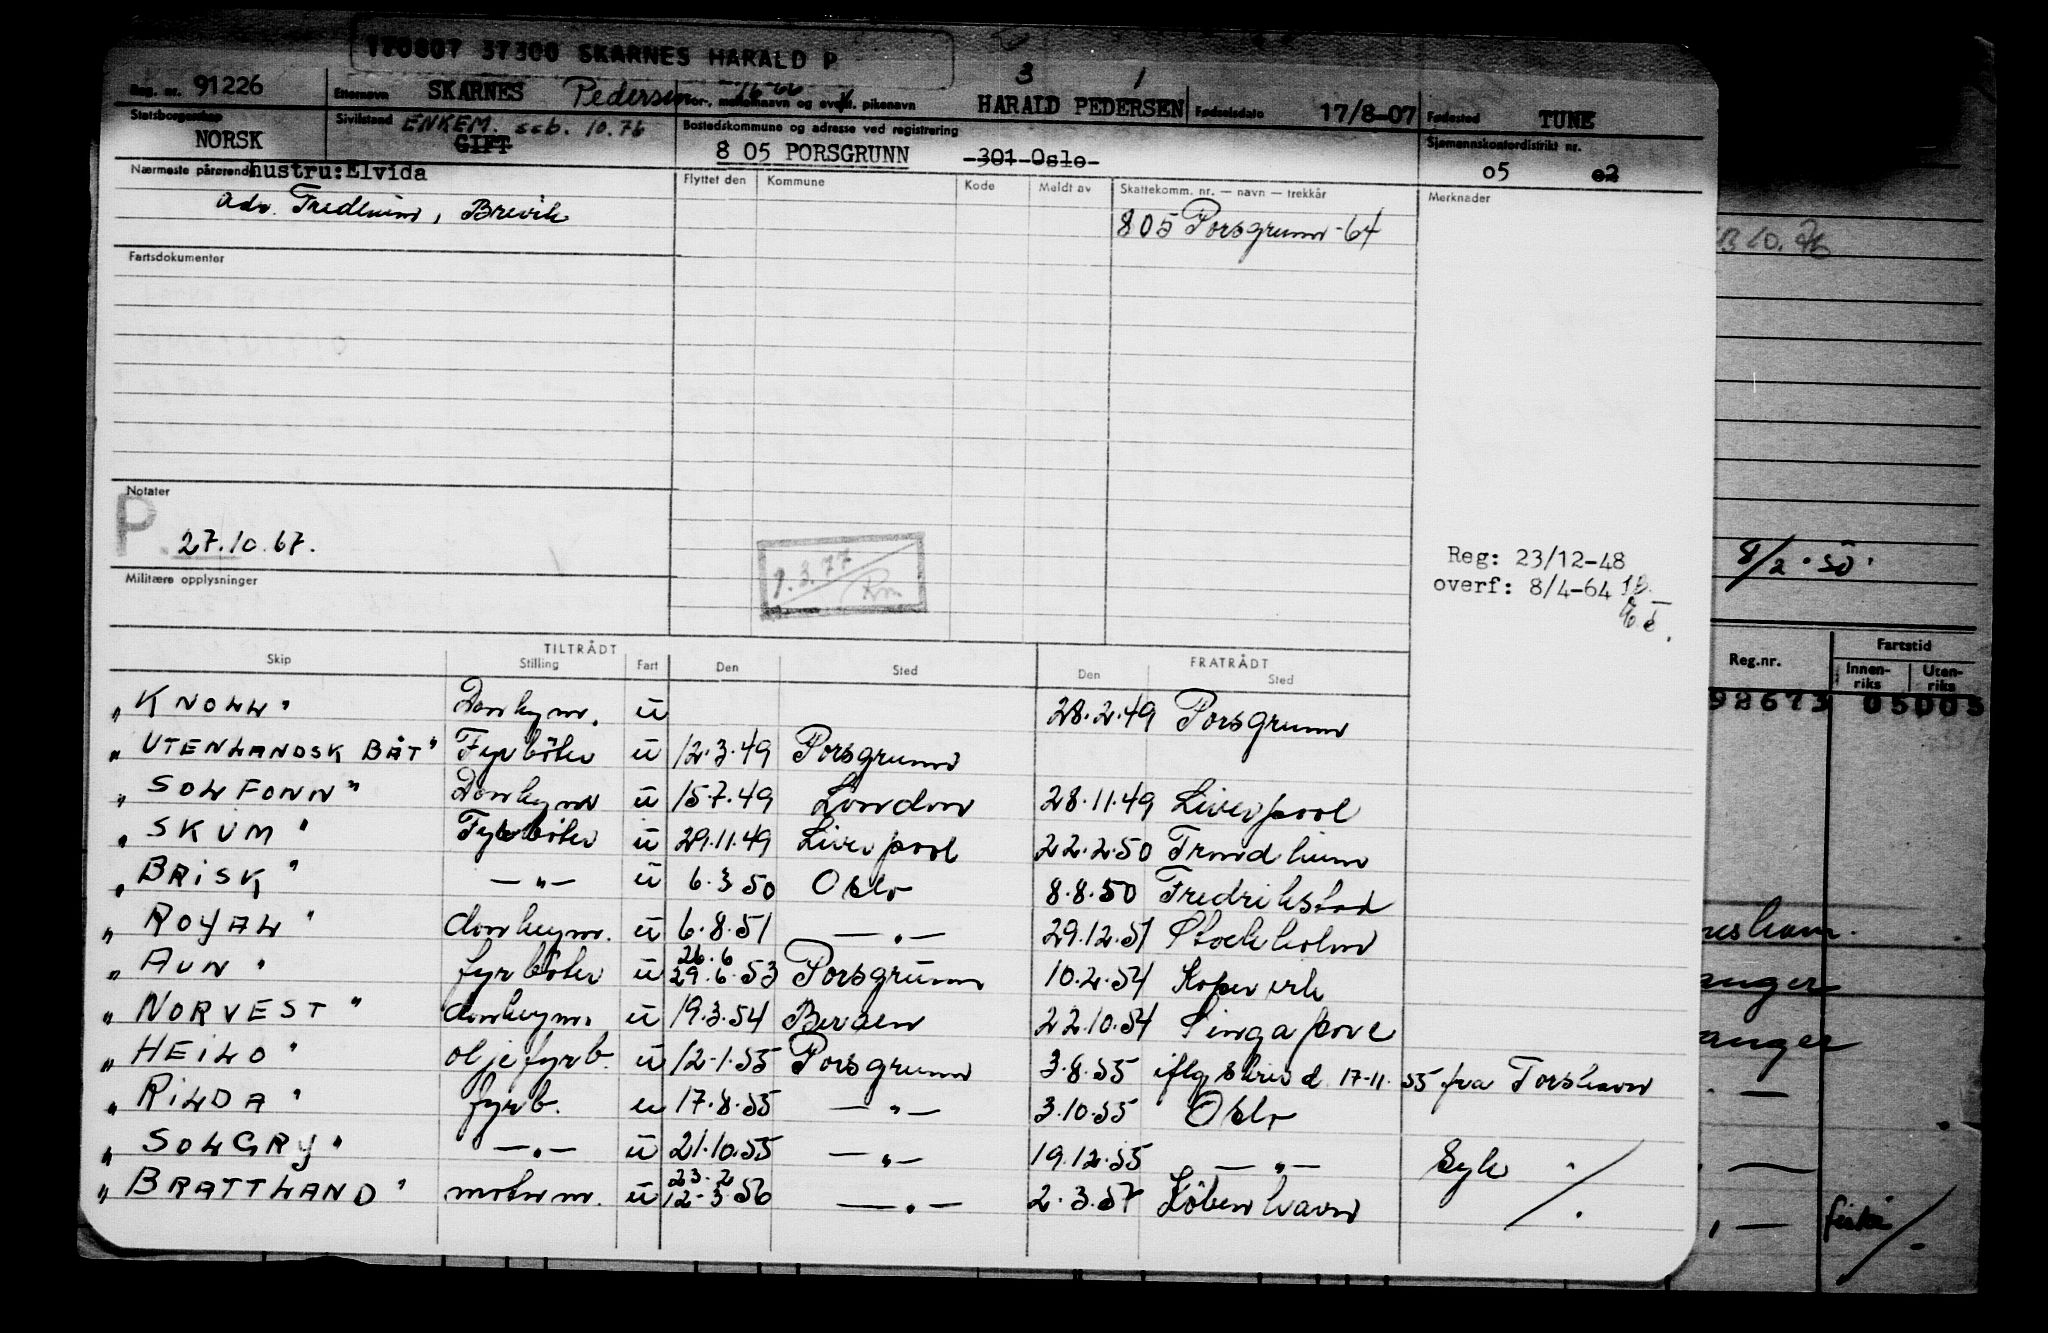 170807 37300 SKARNES HARALD P
3 1
Reg. nr. 91226 Etternavn SKARNES Pedersen For-, mellomnavn og event. pikenavn HARALD PEDERSEN Fødselsdato 17/8-07 Fødested TUNE
Statsborgerskap NORSK Sivilstand ENKEM. seb. 10.76 GIFT Bostedskommune og adresse ved registrering 8 05 PORSGRUNN 301 Oslo Sjømannskontordistrikt nr. 05 02
Nærmeste pårørende hustru: Elvida Flyttet den Kommune Kode Meldt av Skattekomm. nr. — navn — trekkår Merknader
adr. Fredheim, Brevik 805 Porsgrunn -64
B 10.76
Fartsdokumenter
Notater
P. 27.10.67.
9.3.77
Reg: 23/12-48
overf: 8/4-64
8/2.50.
Militære opplysninger
TILTRÅDT FRATRÅDT
Skip Stilling Fart Den Sted Den Sted
Reg.nr. Fartstid Innen-riks Uten-riks
92673 05005
"KNOLL" Donkeym. u 28.2.49 Porsgrunn
"UTENLANDSK BÅT" Fyrböter u 12.3.49 Porsgrunn
"SOLFONN" Donkeym u 15.7.49 London 28.11.49 Liverpool
"SKUM" Fyrböter u 29.11.49 Liverpool 22.2.50 Trondheim
"BRISK" —"— u 6.3 50 Oslo 8.8.50 Fredrikstad
"ROYAL" donkeym. u 6.8.51 —"— 29.12.51 Stockholm
"AUN" fyrböter u 26.6 29.6.53 Porsgrunn 10.2.54 Kopervik
"NORVEST" donkeym. u 19.3.54 Bergen 22.10.54 Singapore
"HEILO" oljefyrb. u 12-1.55 Porsgrunn 3.8.55 iflg skriv d. 17-11.55 fra Torshavn
"RILDA" fyrb. u 17.8.55 —"— 3.10.55 Oslo
"SOLGRY" —"— u 21.10.55 —"— 19.12.55 —"— Syk
"BRATTLAND" motorm. u 23.2 12-3.56 —"— 2.3.57 Köbenhavn ./.